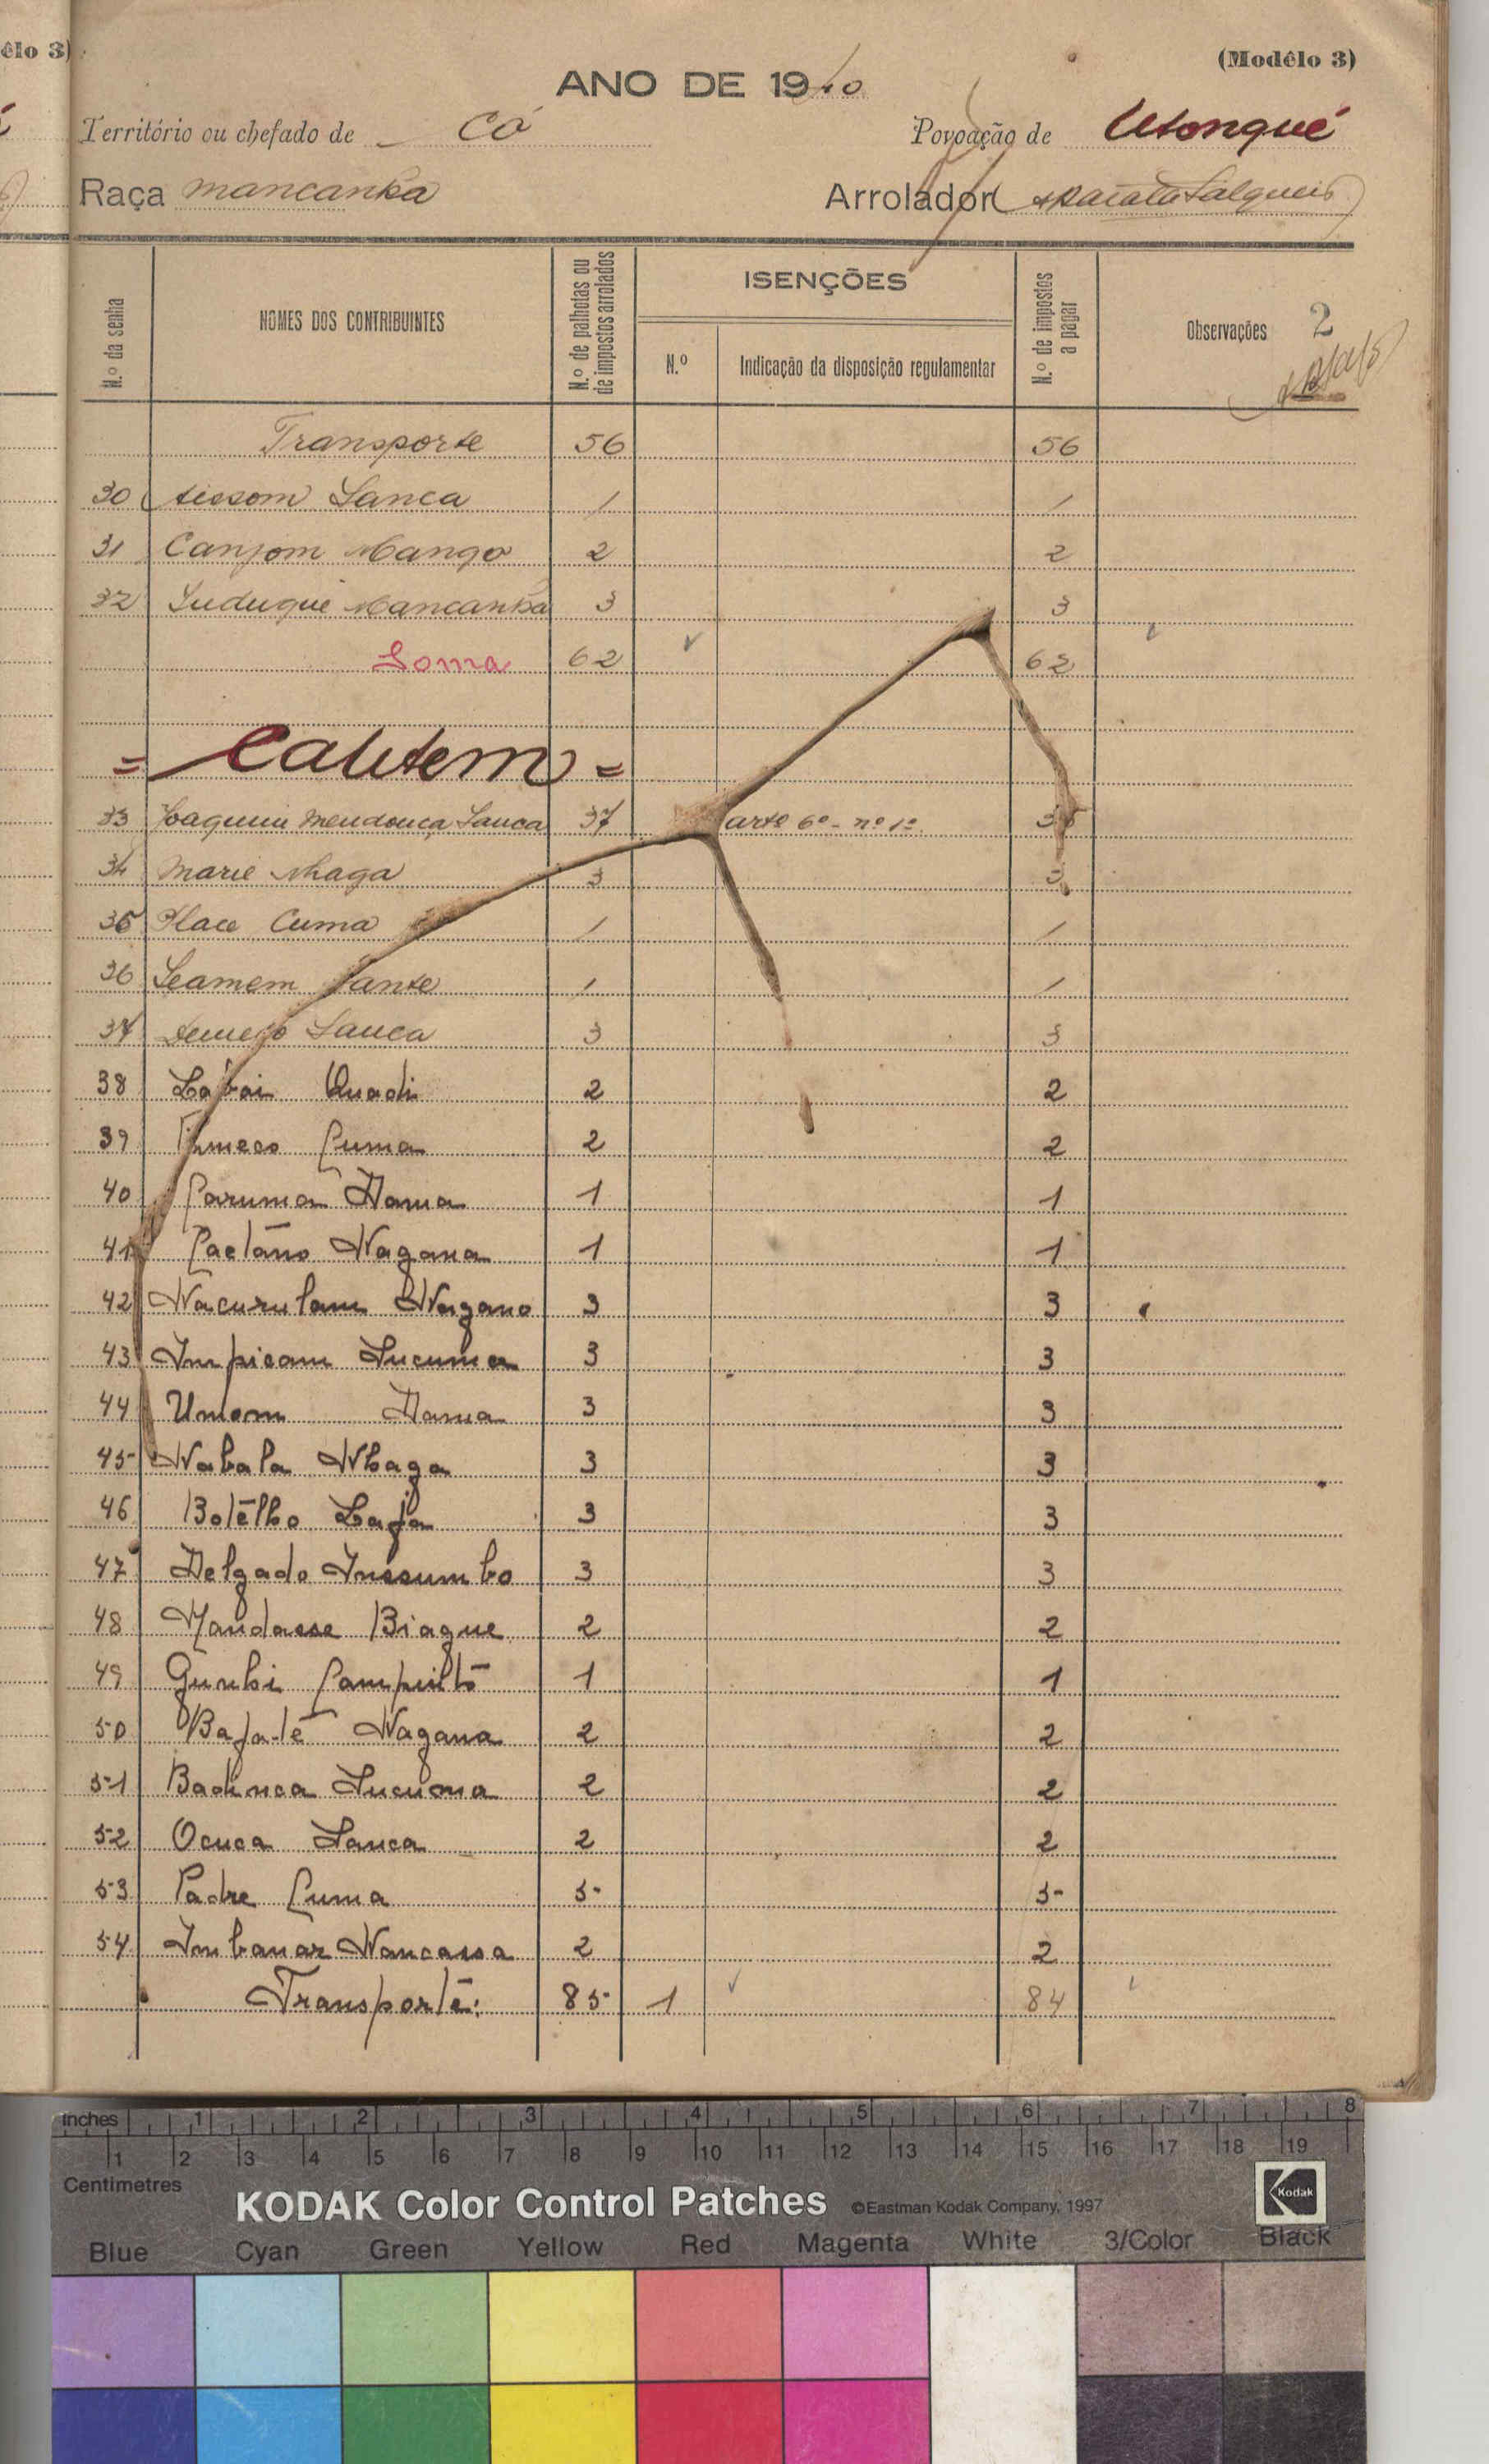 êlo 3)
(Modêlo 3)
ANO DE 1940
Território ou chefado de Có
Povoação de Utonqué
Raça mancanha
Arrolador
N.º da senha
NOMES DOS CONTRIBUINTES
N.º de palhotas ou de impostos arrolados
ISENÇÕES
N.º
Indicação da disposição regulamentar
N.º de impostos a pagar
Observações
2
Transporte 56 56
30 Sanca 1 1
31 Canjom Mango 2 2
32 Mancanha 3 3
Soma 62 62
= Calutem =
33 Joaquim Mendonça Sanca 37 arte 6º - nº 1º
34 Marie Nhaga 3 3
35 Cuma 1 1
36 1 1
37 Sanca 3 3
38 Quadi 2 2
39 Cuma 2 2
40 Caruma Dama 1 1
41 Caetano Nagana 1 1
42 3 3
43 Impicam Sucuma 3 3
44 Dama 3 3
45 Nabala Nhaga 3 3
46 Botêlho 3 3
47 Delgado Inssumbo 3 3
48 Biague 2 2
49 1 1
50 Nagana 2 2
51 Badinca Sucuma 2 2
52 Ocuca Sanca 2 2
53 Padre Cuma 5 5
54 Nancassa 2 2
Transporte: 85 1 84
inches 1 2 3 4 5 6 7 8
1 2 3 4 5 6 7 8 9 10 11 12 13 14 15 16 17 18 19
Centimetres
KODAK Color Control Patches ©Eastman Kodak Company, 1997 Kodak
Blue Cyan Green Yellow Red Magenta White 3/Color Black